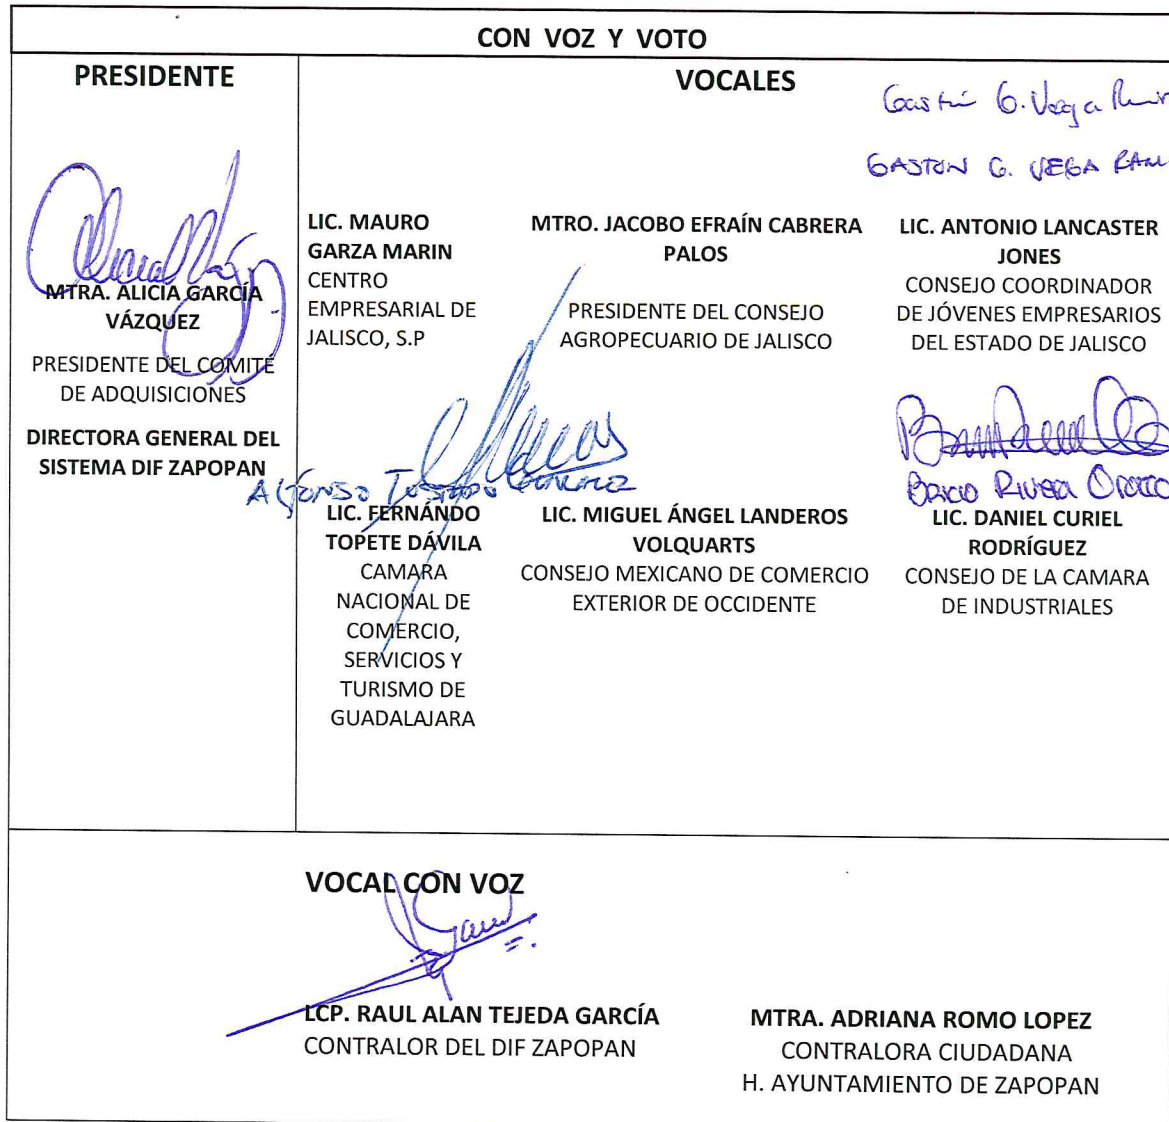 CON VOZ Y VOTO
PRESIDENTE
MTRA. ALICIA GARCÍA
VÁZQUEZ
PRESIDENTE DEL COMITÉ
DE ADQUISICIONES
DIRECTORA GENERAL DEL
SISTEMA DIF ZAPOPAN
VOCALES
G. Vega
GASTON G. VEGA
LIC. MAURO
GARZA MARIN
CENTRO
EMPRESARIAL DE
JALISCO, S.P
MTRO. JACOBO EFRAÍN CABRERA
PALOS
PRESIDENTE DEL CONSEJO
AGROPECUARIO DE JALISCO
LIC. ANTONIO LANCASTER
JONES
CONSEJO COORDINADOR
DE JÓVENES EMPRESARIOS
DEL ESTADO DE JALISCO
ALFONSO
LIC. FERNÁNDO
TOPETE DÁVILA
CAMARA
NACIONAL DE
COMERCIO,
SERVICIOS Y
TURISMO DE
GUADALAJARA
LIC. MIGUEL ÁNGEL LANDEROS
VOLQUARTS
CONSEJO MEXICANO DE COMERCIO
EXTERIOR DE OCCIDENTE
Rivera
LIC. DANIEL CURIEL
RODRÍGUEZ
CONSEJO DE LA CAMARA
DE INDUSTRIALES
VOCAL CON VOZ
LCP. RAUL ALAN TEJEDA GARCÍA
CONTRALOR DEL DIF ZAPOPAN
MTRA. ADRIANA ROMO LOPEZ
CONTRALORA CIUDADANA
H. AYUNTAMIENTO DE ZAPOPAN